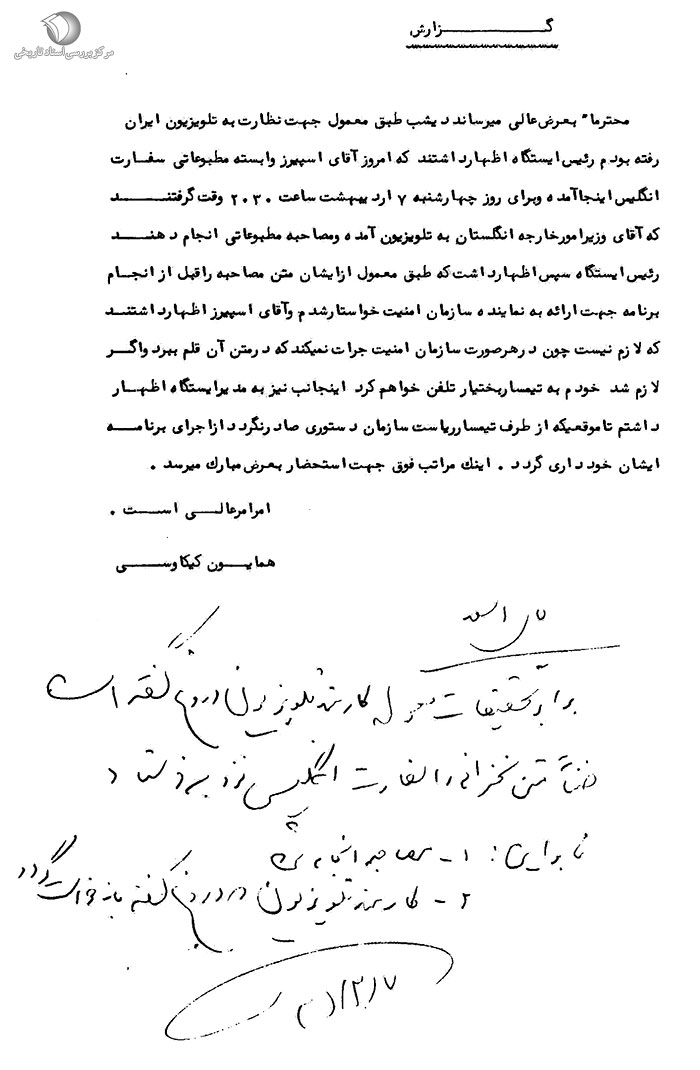 مرکز بررسی اسناد تاریخی
گزارش
محترما" بعرض عالی میرساند دیشب طبق معمول جهت نظارت به تلویزیون ایران
رفته بودم رئیس ایستگاه اظهار داشتند که امروز آقای اسپیرز وابسته مطبوعاتی سفارت
انگلیس اینجا آمده وبرای روز چهارشنبه ۷ اردیبهشت ساعت ۲۰۳۰ وقت گرفتند
که آقای وزیر امور خارجه انگلستان به تلویزیون آمده ومصاحبه مطبوعاتی انجام دهند
رئیس ایستگاه سپس اظهار داشت که طبق معمول از ایشان متن مصاحبه را قبل از انجام
برنامه جهت ارائه به نماینده سازمان امنیت خواستار شدم وآقای اسپیرز اظهار داشتند
که لازم نیست چون در هر صورت سازمان امنیت جرات نمیکند که در متن آن قلم ببرد واگر
لازم شد خودم به تیمسار بختیار تلفن خواهم کرد اینجانب نیز به مدیر ایستگاه اظهار
داشتم تا موقعیکه از طرف تیمسار ریاست سازمان دستوری صادر نگردد از اجرای برنامه
ایشان خودداری گردد . اینك مراتب فوق جهت استحضار بعرض مبارك میرسد .
امر امر عالی است .
همایون کیکاوسی
تحقیقات کارمند تلویزیون دروغ گفته است
ضمناً متن سخنرانی را سفارت انگلیس نزد فرستاد
بنابراین : ۱ - مصاحبه انجام
۲ - کارمند تلویزیون دروغ گفته بازخواست گردد